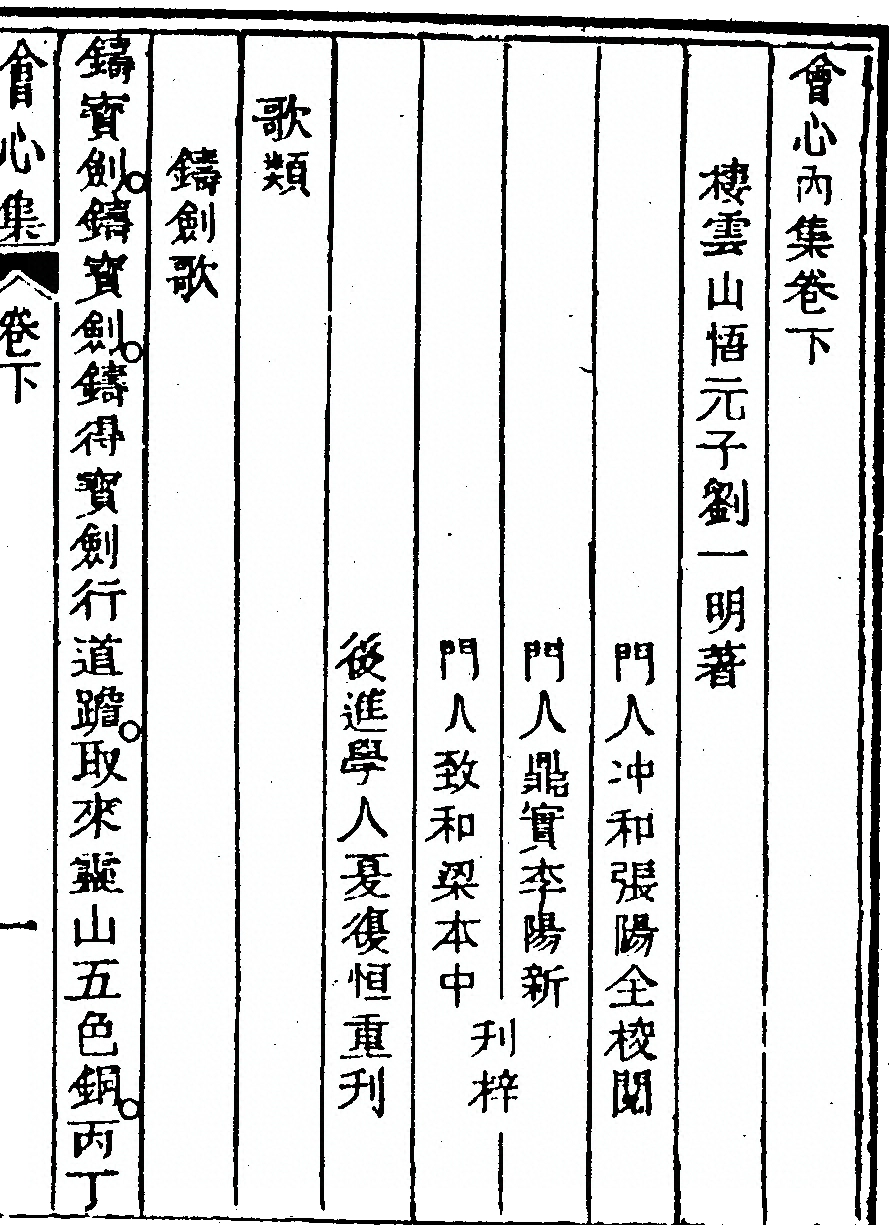 會心內集卷下
棲雲山悟元子劉一明著
門人冲和張陽全校閱
門人鼎實李陽新
門人致和梁本中
刋梓
後進學人夏復恒重刋
歌類
鑄劍歌
鑄寶劍○鑄寶劍○鑄得寶劍行道○取來靈山五色銅○丙丁
會心集
卷下
一